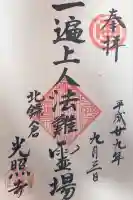 奉拝
平成廿九年九月三日
一遍上人法難霊場
北鎌倉
光照寺